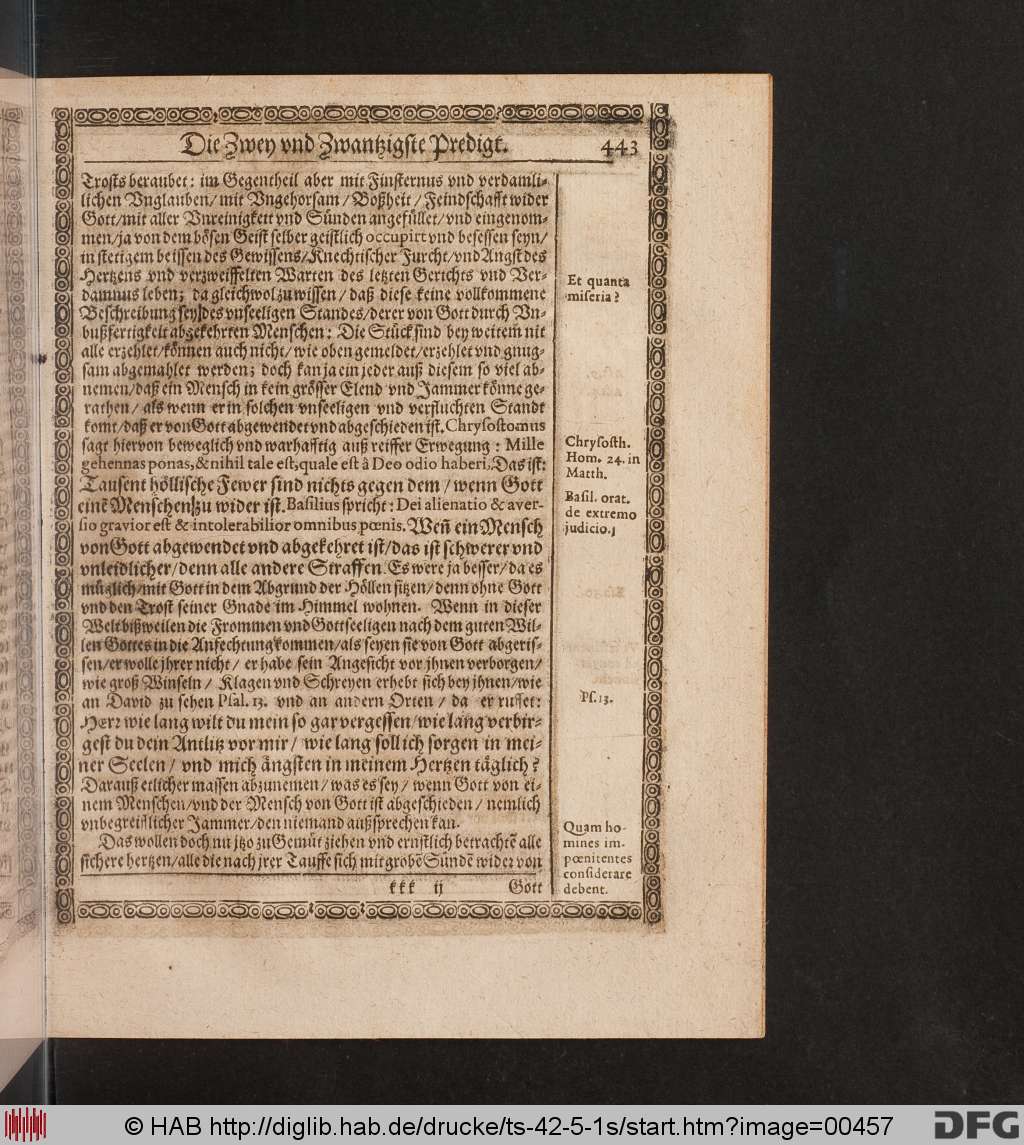 Die Zwey vnd Zwantzigste Predigt. 443
Trosts beraubet: im Gegentheil aber mit Finsternus vnd verdamli-
lichen Vnglauben/ mit Vngehorsam / Boßheit / Feindschafft wider
Gott/mit aller Vnreinigkett vnd Sünden angefüllet/vnd eingenom-
men/ja von dem bösen Geist selber geistlich occupirt vnd besessen seyn/
in stetigem beissen des Gewissens/Knechtischer Furcht/vnd Angst des
Hertzens vnd verzweiffelten Warten des letzten Gerichts vnd Ver-
damnus leben; da gleichwol zu wissen / daß diese keine vollkommene
Beschreibung sey/des vnseeligen Standes/derer von Gott durch Vn-
bußfertigkeit abgekehrten Menschen: Die Stück sind bey weitem nit
alle erzehlet/können auch nicht/wie oben gemeldet/erzehlet vnd gnug-
sam abgemahlet werden; doch kan ja ein jeder auß diesem so viel ab-
nemen/daß ein Mensch in kein grösser Elend vnd Jammer könne ge-
rathen/ als wenn er in solchen vnseeligen vnd verfluchten Standt
komt/daß er von Gott abgewendet vnd abgeschieden ist. Chrysostomus
sagt hiervon beweglich vnd warhafftig auß reiffer Erwegung: Mille
gehennas ponas, & nihil tale est, quale est â Deo odio haberi, Das ist:
Tausent höllische Fewer sind nichts gegen dem / wenn Gott
einē Menschen zu wider ist. Basilius spricht: Dei alienatio & aver-
sio gravior est & intolerabilior omnibus pœnis. Weñ ein Mensch
von Gott abgewendet vnd abgekehret ist/das ist schwerer vnd
vnleidlicher/denn alle andere Straffen. Es were ja besser/da es
müglich/mit Gott in dem Abgrund der Höllen sitzen/denn ohne Gott
vnd den Trost seiner Gnade im Himmel wohnen. Wenn in dieser
Welt bißweilen die Frommen vnd Gottseeligen nach dem guten Wil-
len Gottes in die Anfechtung kommen/als seyen sie von Gott abgeris-
sen/er wolle jhrer nicht/ er habe sein Angesicht vor jhnen verborgen/
wie groß Winseln / Klagen vnd Schreyen erhebt sich bey jhnen/wie
an David zu sehen Psal. 13. vnd an andern Orten / da er ruffet:
Herr wie lang wilt du mein so gar vergessen/wie lang verbir-
gest du dein Antlitz vor mir/ wie lang soll ich sorgen in mei-
ner Seelen / vnd mich ängsten in meinem Hertzen täglich?
Darauß etlicher massen abzunemen / was es sey / wenn Gott von ei-
nem Menschen/vnd der Mensch von Gott ist abgeschieden / nemlich
vnbegreifflicher Jammer/den niemand außsprechen kan.
Das wollen doch nu jtzo zu Gemüt ziehen vnd ernstlich betrachtē alle
sichere hertzen/alle die nach jrer Tauffe sich mit grobē Sündē wider von
kkk ij Gott
Et quanta
miseria?
Chrysosth.
Hom. 24. in
Matth.
Basil. orat.
de extremo
judicio.
Ps. 13.
Quam ho-
mines im-
pœnitentes
considerare
debent.
© HAB http://diglib.hab.de/drucke/ts-42-5-1s/start.htm?image=00457
DFG